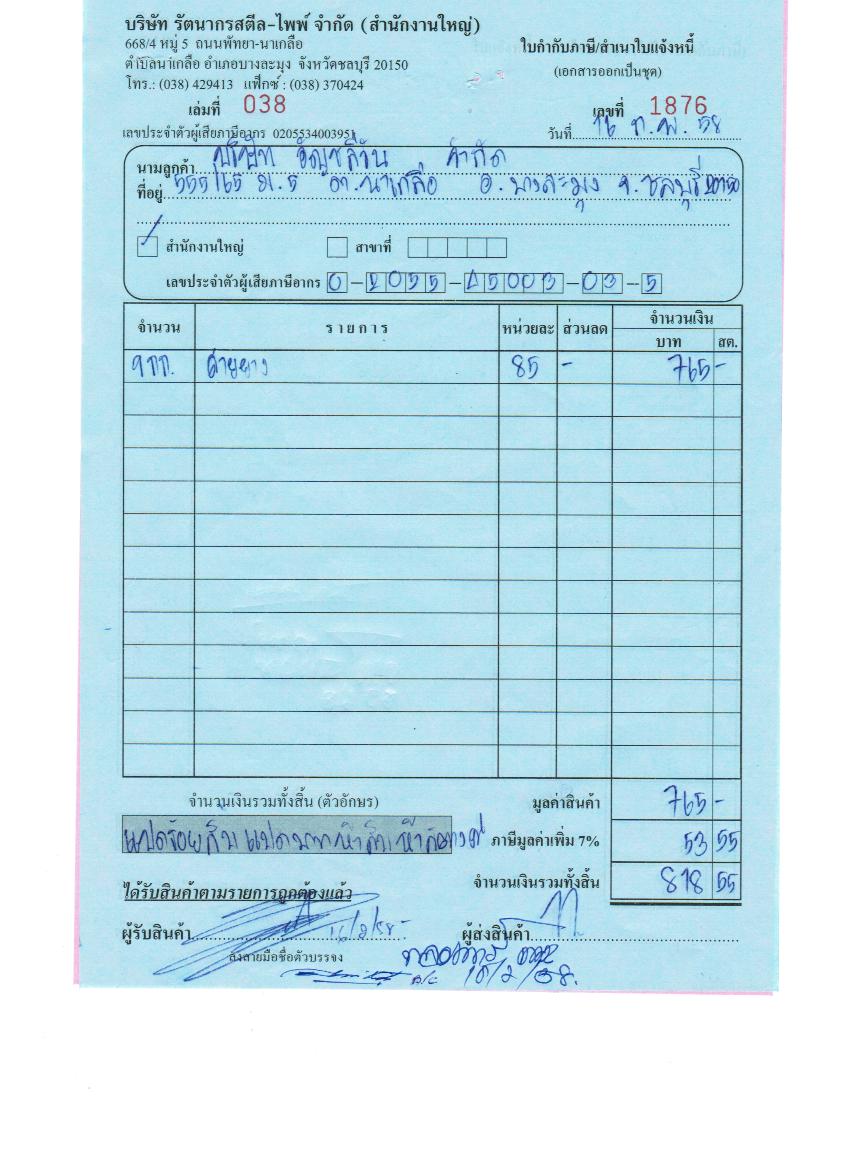 บริษัท รัตนากรสตีล-ไพพ์ จำกัด (สำนักงานใหญ่)
668/4 หมู่ 5 ถนนพัทยา-นาเกลือ
ตำบลนาเกลือ อำเภอบางละมุง จังหวัดชลบุรี 20150
โทร.: (038) 429413 แฟ็กซ์ : (038) 370424
ใบกำกับภาษี/สำเนาใบแจ้งหนี้
(เอกสารออกเป็นชุด)
เล่มที่ 038
เลขที่ 1876
เลขประจำตัวผู้เสียภาษีอากร 0205534003951
วันที่ 16 ก.พ. 58
นามลูกค้า บริษัท จำกัด
ที่อยู่ 555/65 ม.5 ต.นาเกลือ อ.บางละมุง จ.ชลบุรี 20150
สำนักงานใหญ่ สาขาที่
เลขประจำตัวผู้เสียภาษีอากร
จำนวน รายการ หน่วยละ ส่วนลด จำนวนเงิน
บาท สต.
9 กก. สายยาง 85 - 765 -
จำนวนเงินรวมทั้งสิ้น (ตัวอักษร)
มูลค่าสินค้า 765 -
แปดร้อยสิบแปดบาทห้าสิบห้าสตางค์
ภาษีมูลค่าเพิ่ม 7% 53 55
จำนวนเงินรวมทั้งสิ้น 818 55
ได้รับสินค้าตามรายการถูกต้องแล้ว
ผู้รับสินค้า 16/2/58
ผู้ส่งสินค้า
ลงลายมือชื่อตัวบรรจง
16/2/58.